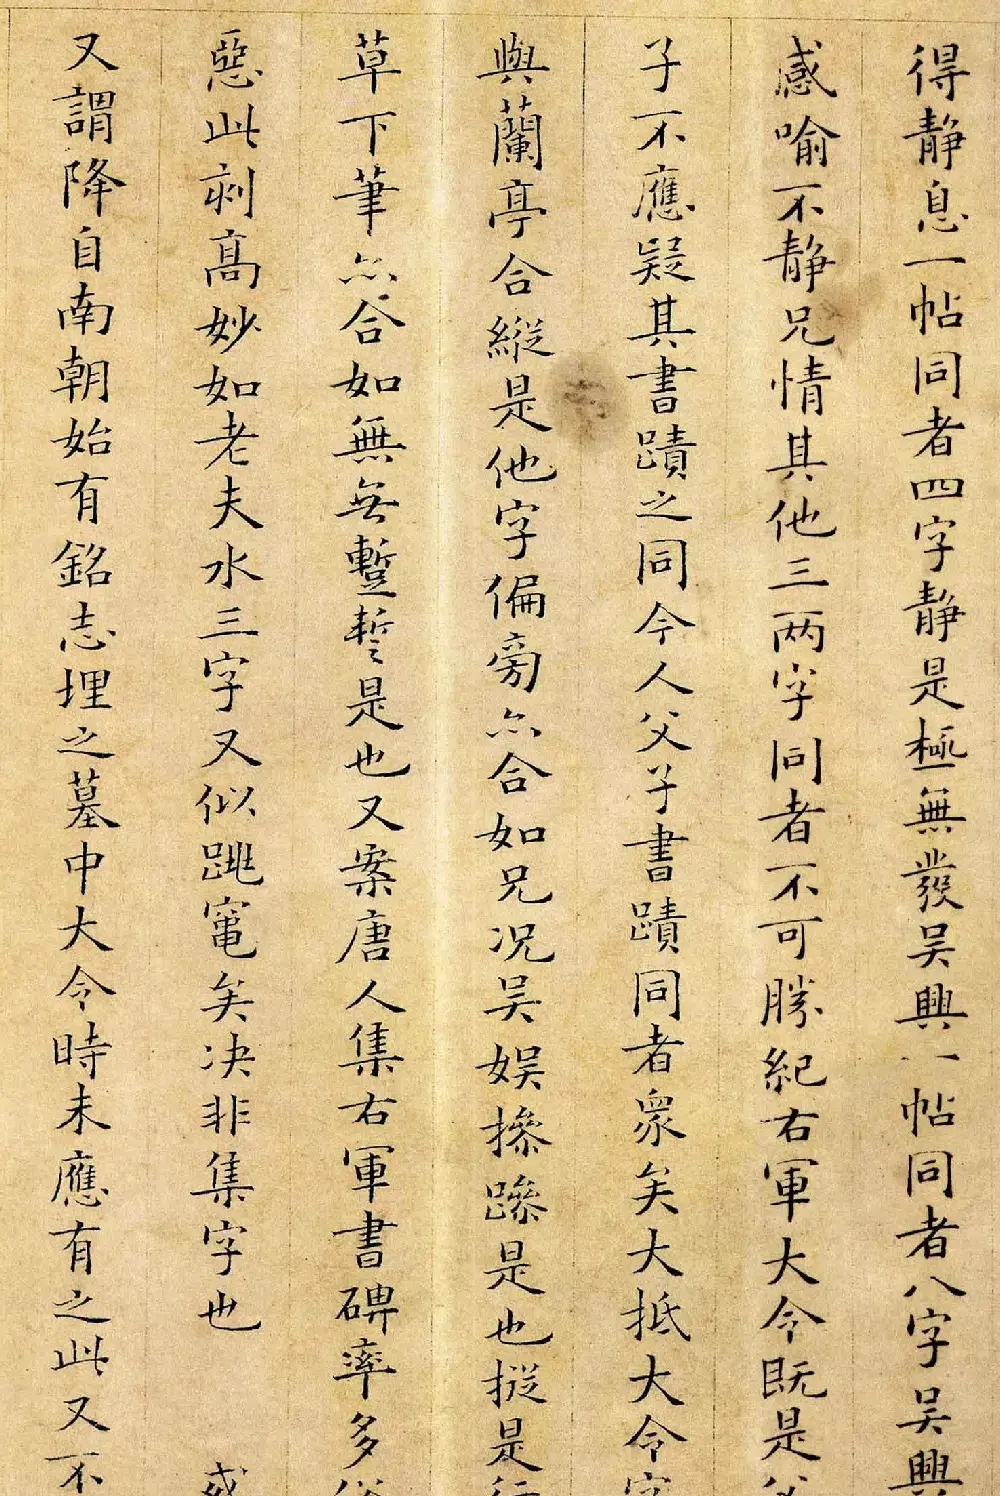 得静息一帖同者四字静是極無發吴興一帖同者八字吴興
感喻不静兄情其他三两字同者不可勝紀右軍大令既是父
子不應疑其書蹟之同今人父子書蹟同者衆矣大抵大令字
與蘭亭合縱是他字偏旁亦合如兄况吴娱摻蹤是也摐是行
草下筆亦合如無無蹔誓是也又案唐人集右軍書碑率多俗
惡此刻高妙如老夫水三字又似跳竃矣决非集字也 或
又謂降自南朝始有銘志埋之墓中大令時未應有之此又不